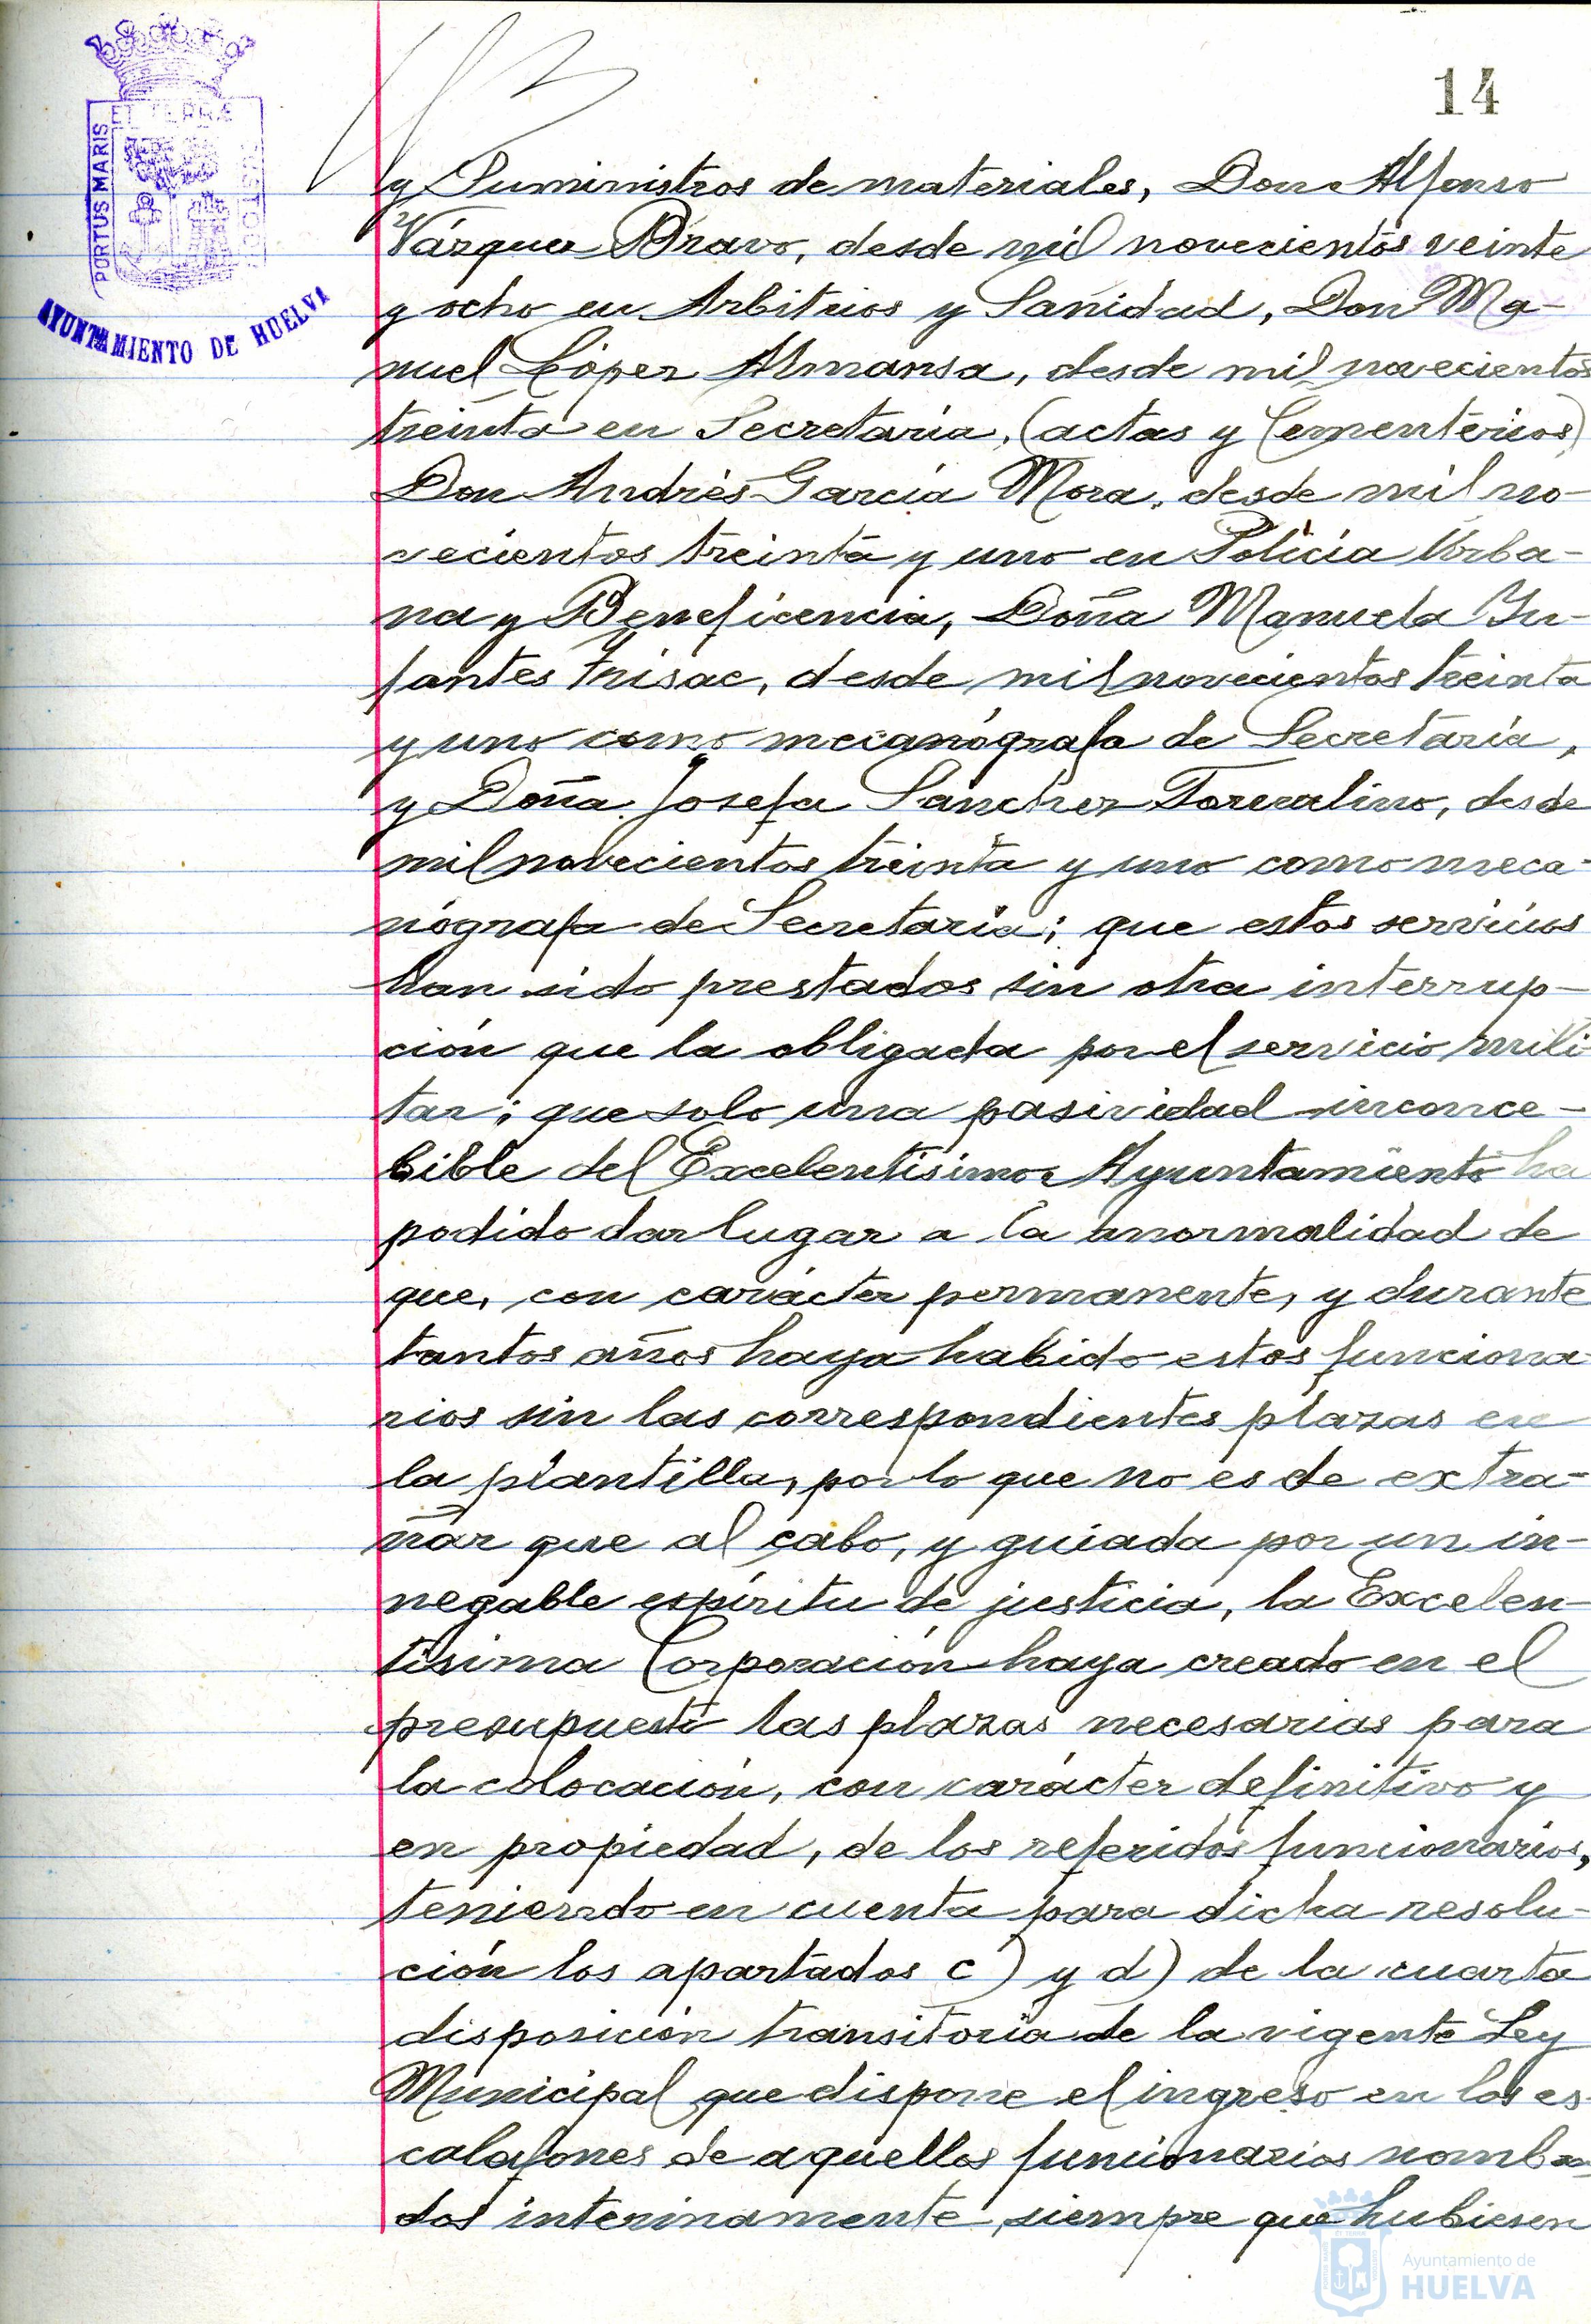 14
ET TERRÆ
PORTUS MARIS
CUSTODIA
AYUNTAMIENTO DE HUELVA
y Suministros de materiales, Don Alfonso
Vázquez Bravo, desde mil novecientos veinte
y ocho en Arbitrios y Sanidad, Don Ma-
nuel López Almansa, desde mil novecientos
treinta en Secretaría, (actas y Cementerios)
Don Andrés García Mora, desde mil no-
vecientos treinta y uno en Policía Urba-
na y Beneficencia, Doña Manuela In-
fantes Frisac, desde mil novecientos treinta
y uno como mecanógrafa de Secretaría,
y Doña Josefa Sánchez Torrealino, desde
mil novecientos treinta y uno como meca-
nógrafa de Secretaría; que estos servicios
han sido prestados sin otra interrup-
ción que la obligada por el servicio mili-
tar; que solo una pasividad inconce-
bible del Excelentísimo Ayuntamiento ha
podido dar lugar a la anormalidad de
que, con carácter permanente, y durante
tantos años haya habido estos funciona-
rios sin las correspondientes plazas en
la plantilla, por lo que no es de extra-
ñar que al cabo, y guiada por un in-
negable espíritu de justicia, la Excelen-
tísima Corporación haya creado en el
presupuesto las plazas necesarias para
la colocación, con carácter definitivo y
en propiedad, de los referidos funcionarios,
teniendo en cuenta para dicha resolu-
ción los apartados c) y d) de la cuarta
disposición transitoria de la vigente Ley
Municipal que dispone el ingreso en los es-
calafones de aquellos funcionarios nombra-
dos interinamente, siempre que hubiesen
Ayuntamiento de
HUELVA